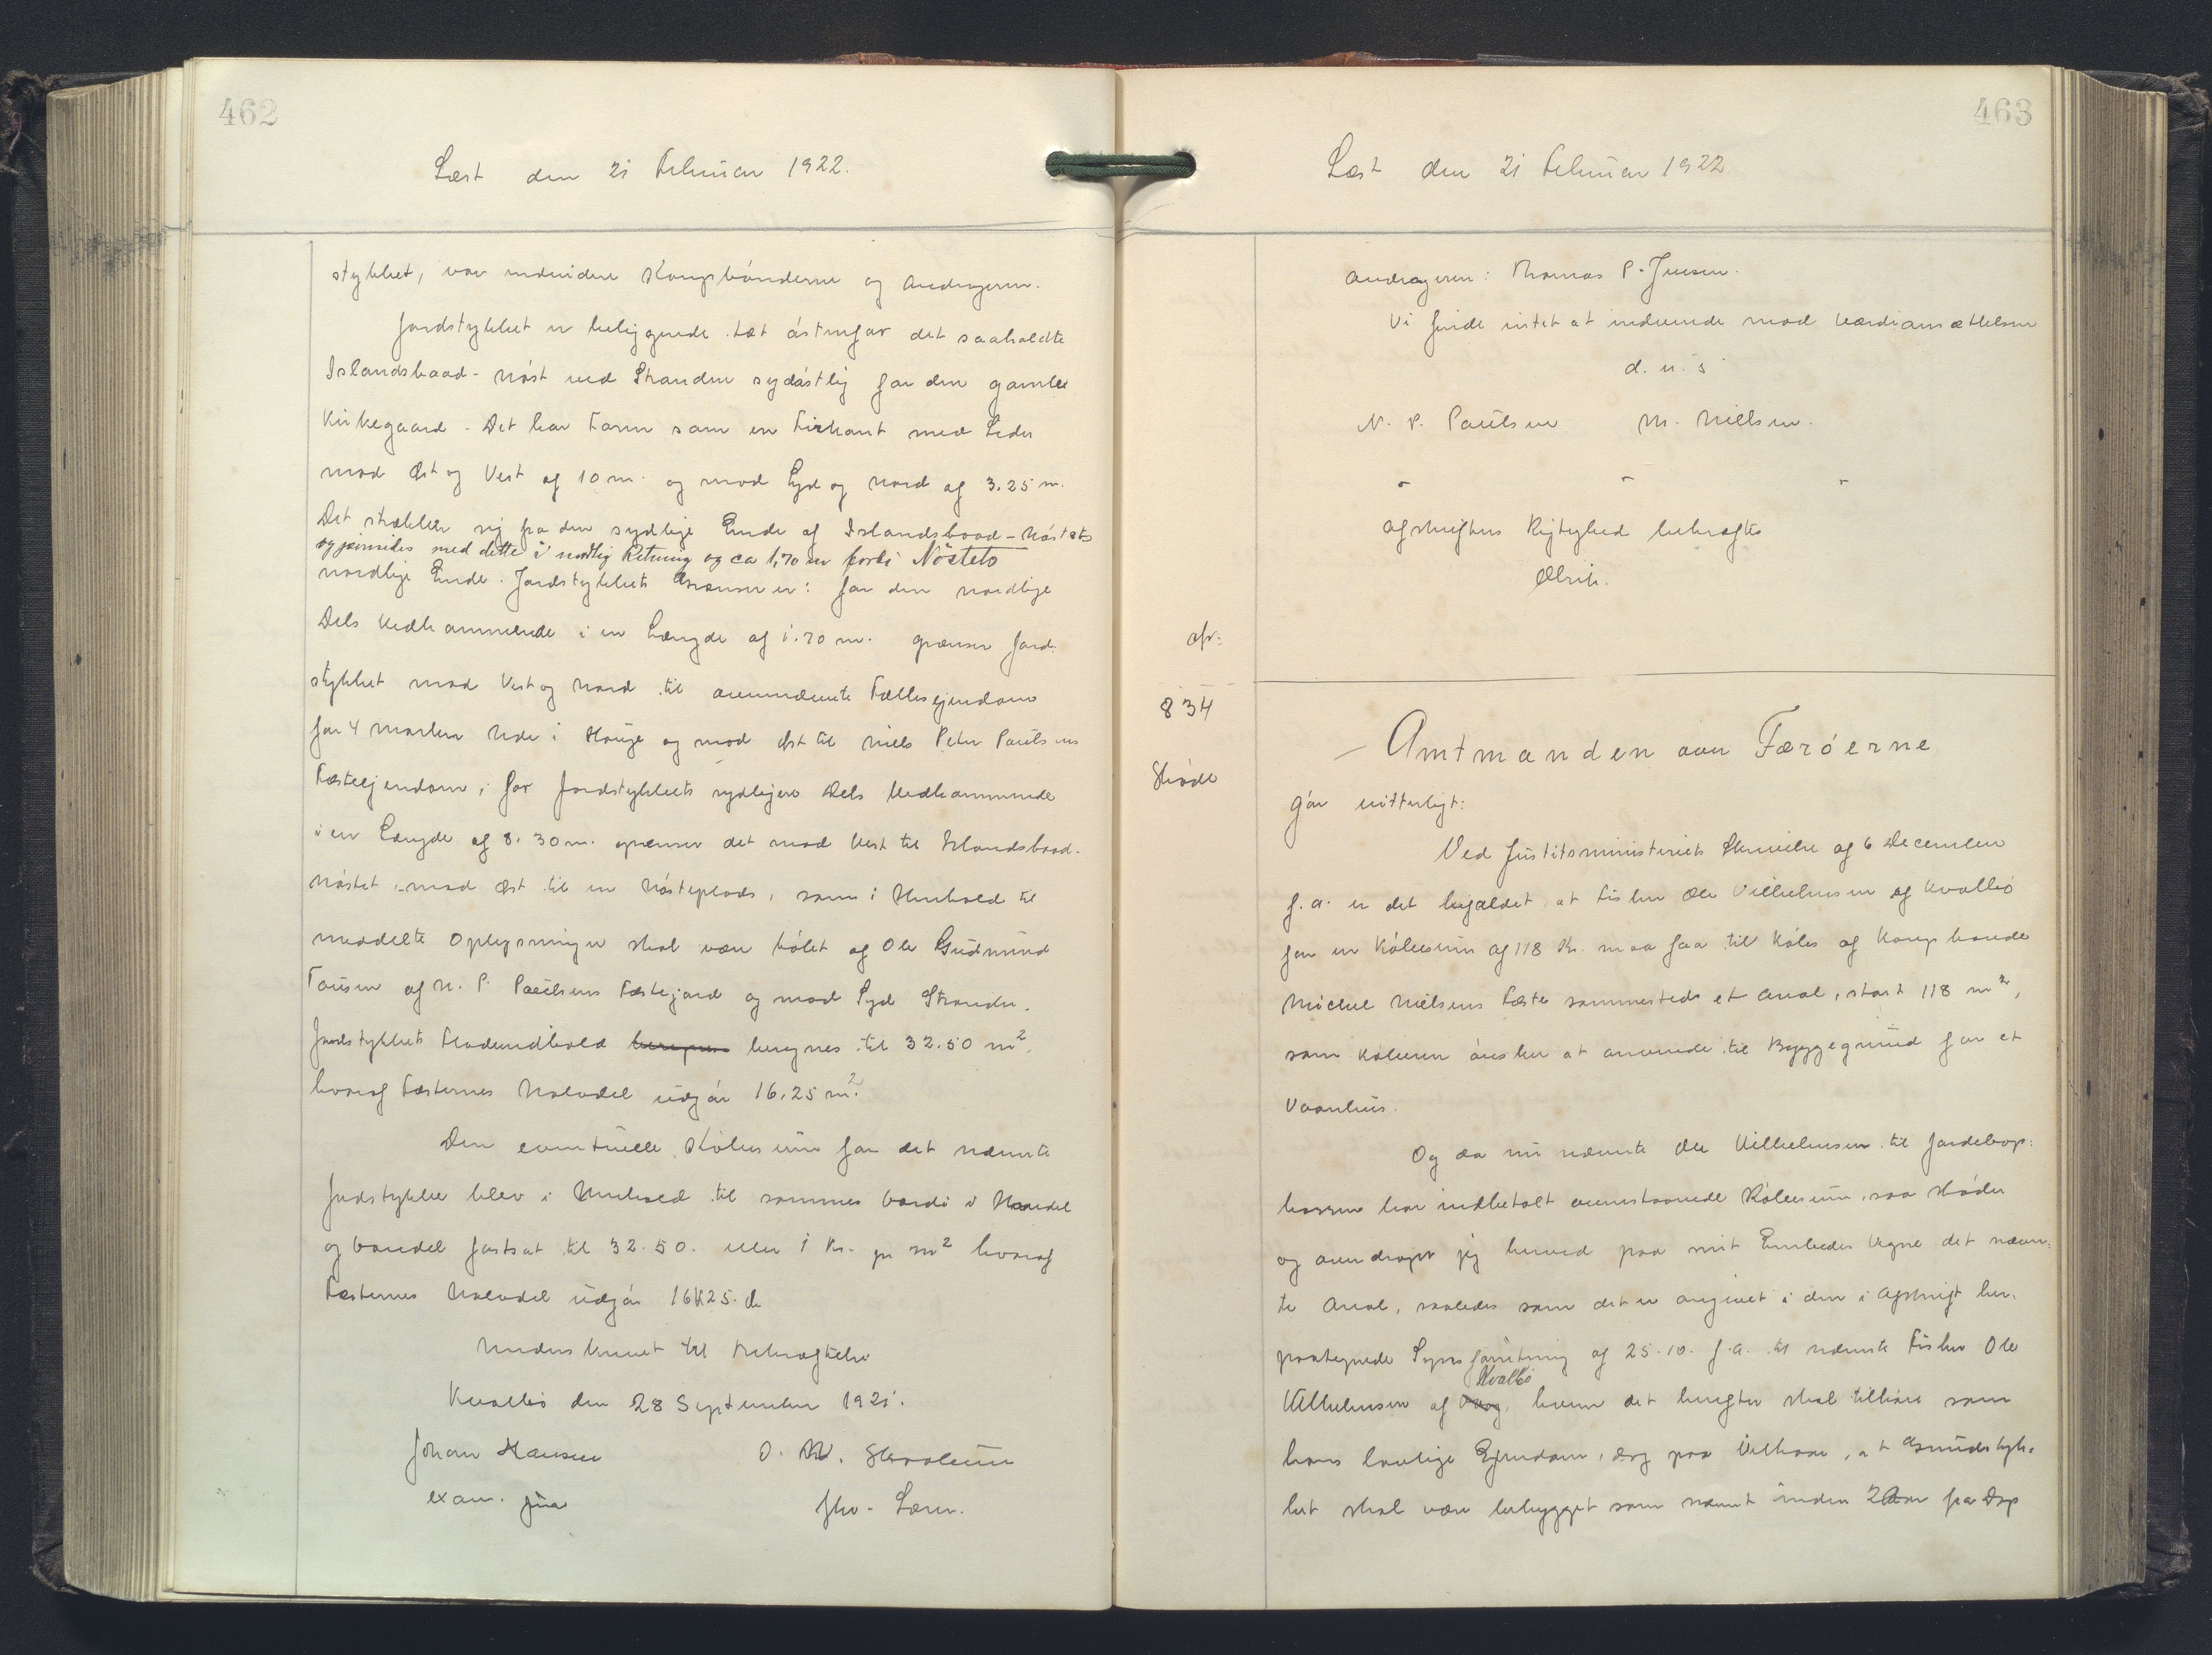 462
Læst den 21 Februar 1922.
stykket, var endvidere Kongsbønderne og Andrageren.
Jordstykket er beliggende tæt østenfor det saakaldte
Islandsbaad-Nøst ved Stranden sydøstlig for den gamle
Kirkegaard. Det har Form som en Firkant med Sider
mod Øst og Vest af 10 m. og mod Syd og Nord af 3.25 m.
Det strækker sig fra den sydlige Ende af Islandsbaad-Nøstets
og jævnsides med dette i nordlig Retning og ca 1,70 m forbi Nöstets
nordlige Ende. Jordstykkets Grænser er: for den nordlige
Dels Vedkommende i en Længde af 1.70 m. grænser Jord-
stykket mod Vest og Nord til ovennævnte Fællesejendom
for 4 Marker Ude i Hauge og mod Øst til Niels Peter Poulsens
Fæsteejendom, for Jordstykkets sydligere Dels Vedkommende
i en Længde af 8.30 m. grænser det mod Vest til Islandsbaad-
Nøstet, mod Øst til en Nøsteplads, som i Henhold til
meddelte Oplysninger skal være købt af Ole Gudmund
Joensen af N. P. Poulsens Fæstejord og mod Syd Stranden.
Jordstykkets Fladeindhold beregnes beregnes til 32.50 m²,
hvoraf Fæsternes Halvdel udgør 16.25 m².
Den eventuelle Købesum for det nævnte
Jordstykke blev i Henhold til sammes Værdi i Handel
og Vandel fastsat til 32.50. eller 1 Kr. pr m² hvoraf
Fæsternes Halvdel udgør 16 K 25. Ø
Underskrevet til Bekræftelse
Kvalbø den 28 September 1921.
Johan Hansen O. W. Skaalum
exam. jur. fhv. Lærer.
463
Læst den 21 Februar 1922
Andrageren: Thomas P. Jensen.
Vi finde intet at indvende mod Værdiansættelsen
d. u. s
N. P. Poulsen M. Nielsen.
" " "
Afskriftens Rigtighed bekræftes
Ølrik.
afr:
834
Skøde
Amtmanden over Færøerne
gør vitterligt:
Ved Justitsministeriets Skrivelse af 6 December
f. a. er det bifaldet, at Fisker Ole Vilhelmsen af Kvalbø
for en Købesum af 118 Kr. maa faa til Købs af Kongsbonde
Michael Nielsens Fæste sammesteds et Areal, stort 118 m²,
som Køberen ønsker at anvende til Byggegrund for et
Vaanhus.
Og da nu nævnte Ole Vilhelmsen til Jordebogs-
kassen har indbetalt ovenstaaende Købesum, saa skøder
og overdrager jeg herved paa mit Embedes Vegne det nævn-
te Areal, saaledes som det er angivet i den i Afskrift her-
paategnede Synsforretning af 25.10. f.a. til nævnte Fisker Ole
Vilhelmsen af Kvalbø, hvem det herefter skal tilhøre som
hans lovlige Ejendom, dog paa Vilkaar, at Grundstyk-
ket skal være bebygget som nævnt inden 2 Aar fra Dags